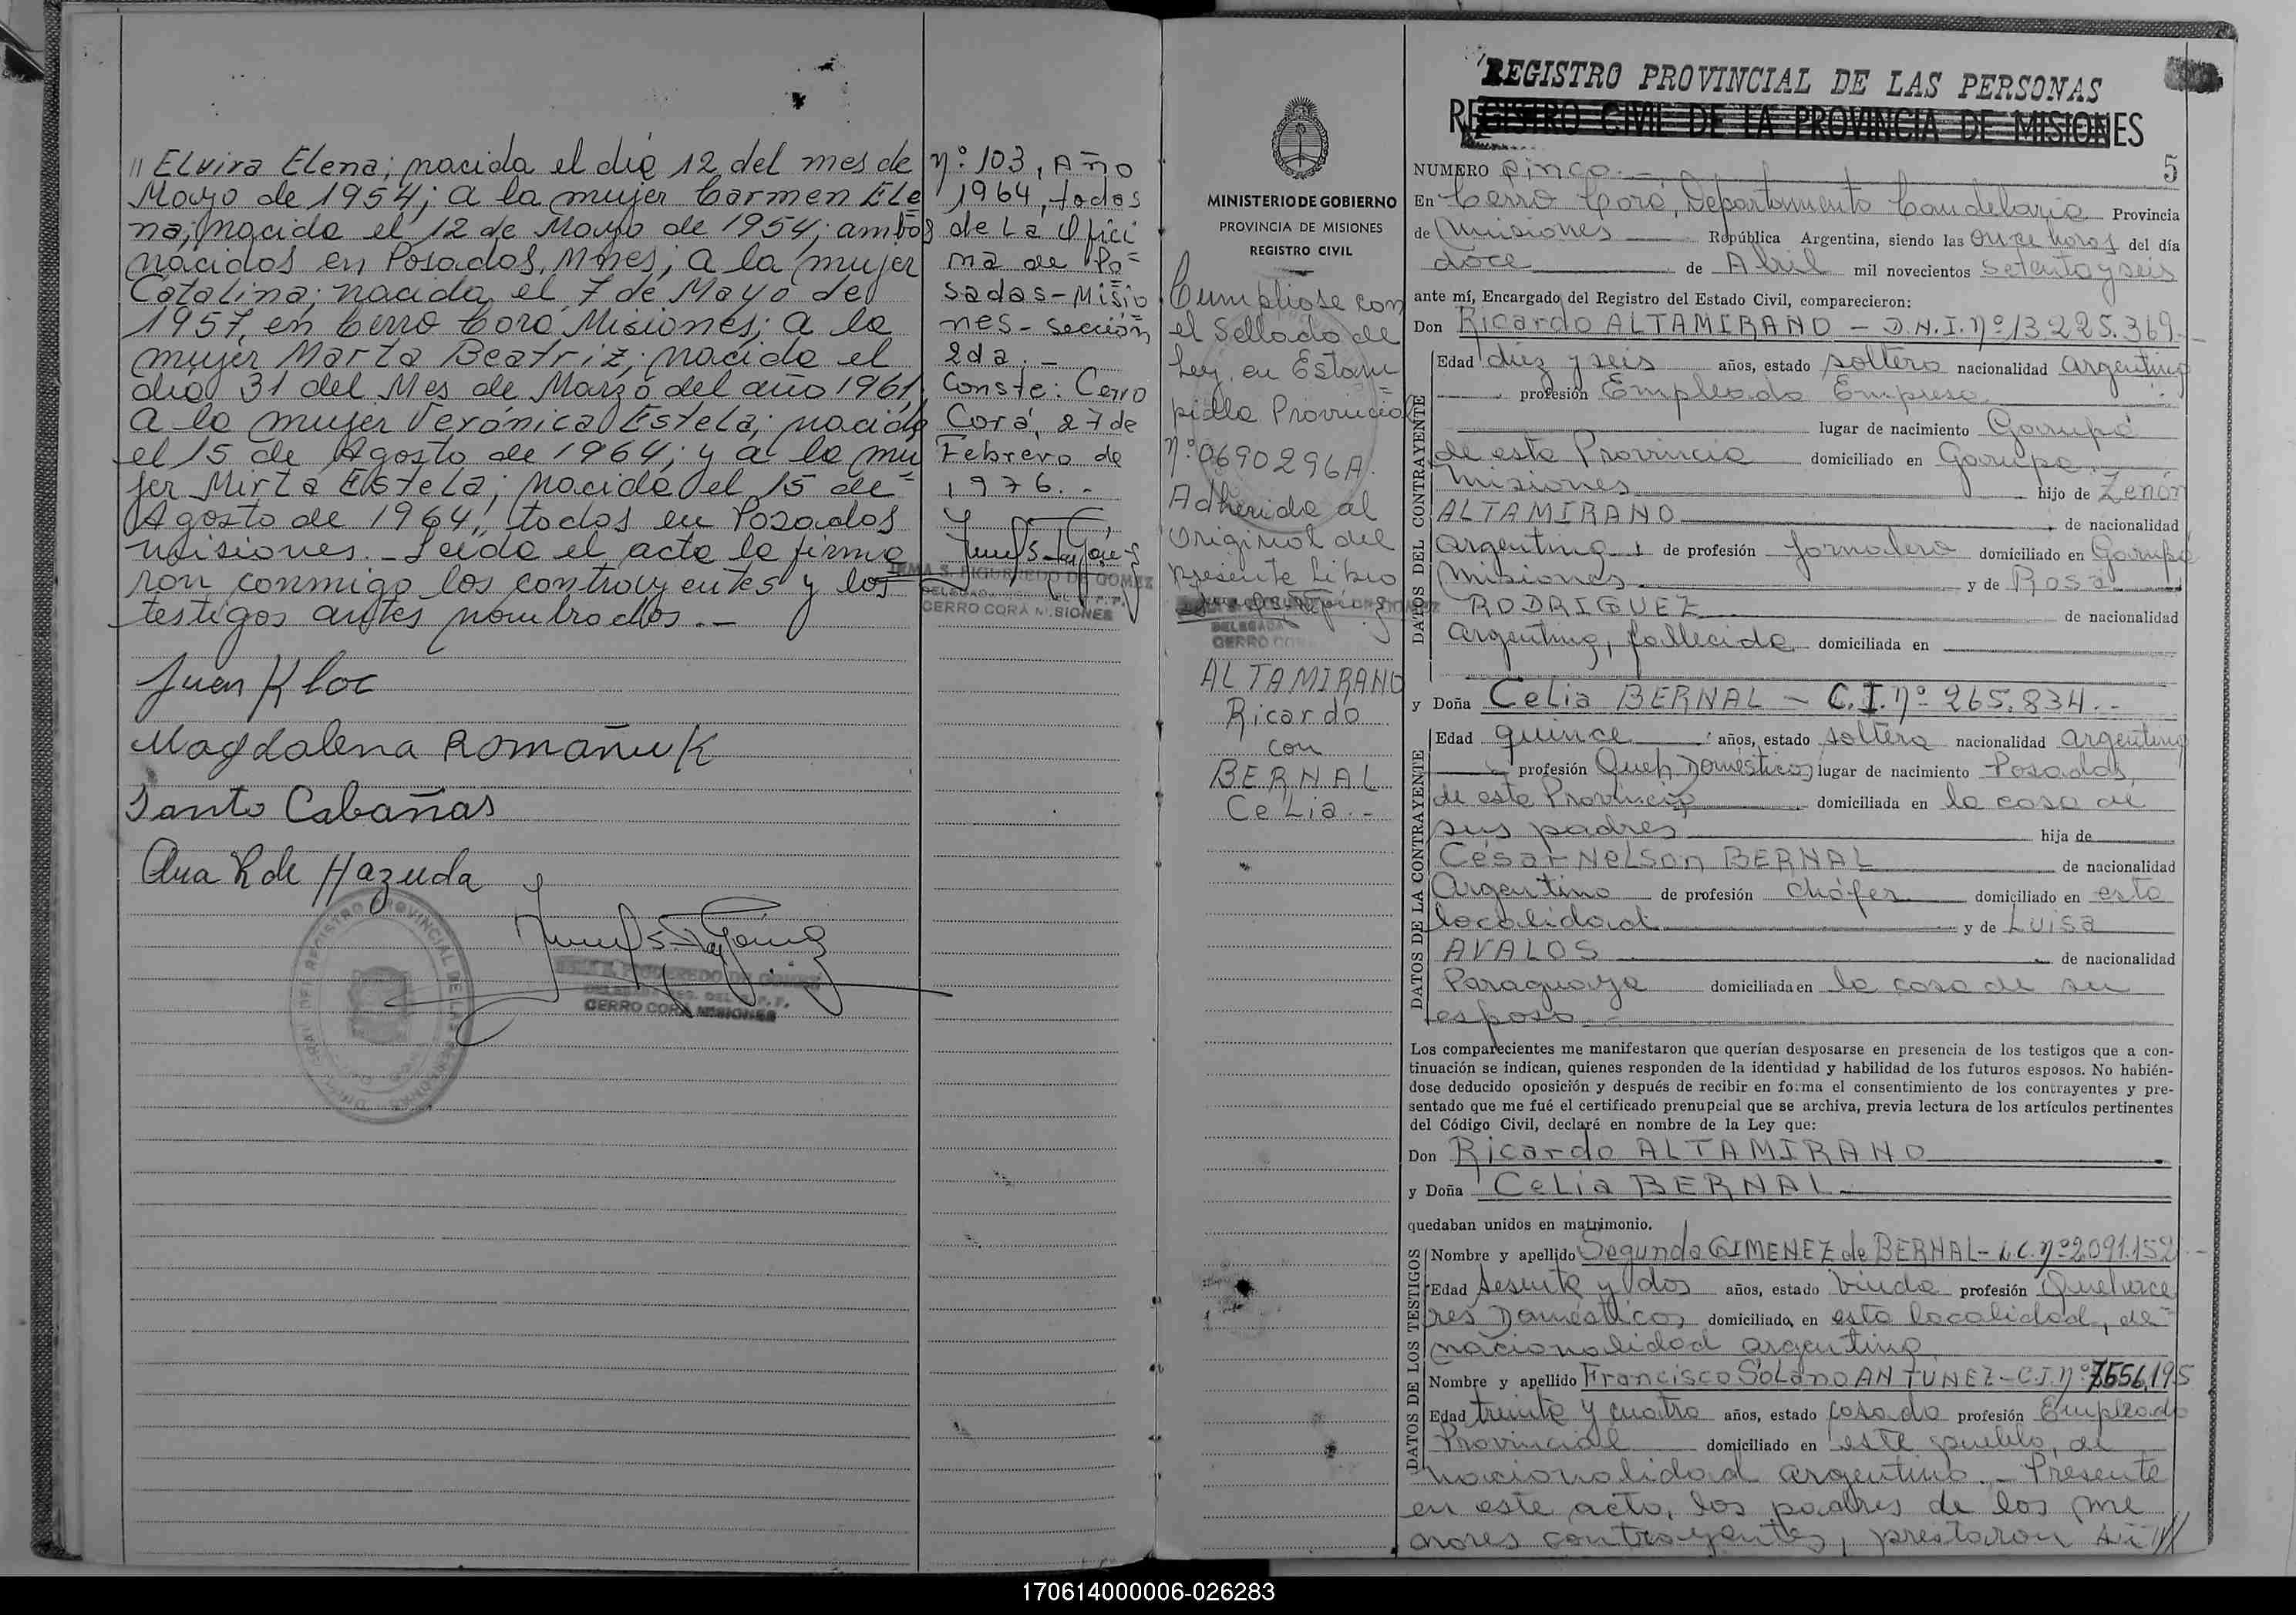 " Elvira Elena; nacida el dia 12 del mes de
Mayo de 1954; a la mujer Carmen Ele
na; nacida el 12 de Mayo de 1954; ambos
nacidos en Posadas, Mnes; a la mujer
Catalina; nacida el 7 de Mayo de
1957, en Cerro Corá Misiones; a la
mujer Marta Beatriz; nacida el
dia 31 del Mes de Marzo del año 1961,
a la mujer Verónica Estela; nacida
el 15 de Agosto de 1964; y a la mu
jer Mirta Estela; nacida el 15 de
Agosto de 1964; todos en Posadas
misiones. - Leída el acta la firma
ron conmigo los contrayentes y los
testigos antes nombrados. -
Juan Kloc
Magdalena Romañuk
Santo Cabañas
Ana R de Hazuda
CERRO CORÁ MISIONES
n.º 103, Año
1964, todos
de la Ofici
na de Po=
sadas-Misio
nes - sección
2da. -
Conste: Cerro
Corá, 27 de
Febrero de
1976. -
CERRO CORÁ MISIONES
MINISTERIO DE GOBIERNO
PROVINCIA DE MISIONES
REGISTRO CIVIL
Cumpliose con
el Sellado de
Ley, en Estam
pilla Provincial
n.º 0690296A.
Adherida al
Original del
presente Libro
DELEGADA
ALTAMIRANO
Ricardo
con
BERNAL
Celia. -
REGISTRO PROVINCIAL DE LAS PERSONAS
REGISTRO CIVIL DE LA PROVINCIA DE MISIONES
NUMERO cinco. - 5
En Cerro Corá, Departamento Candelaria Provincia
de Misiones República Argentina, siendo las once horas del día
doce de Abril mil novecientos setenta y seis
ante mí, Encargado del Registro del Estado Civil, comparecieron:
Don Ricardo ALTAMIRANO - D.N.I. nº 13.225.369. -
DATOS DEL CONTRAYENTE
Edad diez y seis años, estado soltero nacionalidad argentino
profesión Empleado Empresa
lugar de nacimiento Garupá
de esta Provincia domiciliado en Garupá.
Misiones hijo de Zenón
ALTAMIRANO de nacionalidad
argentino, de profesión Jornalero domiciliado en Garupá
Misiones y de Rosa
RODRIGUEZ de nacionalidad
argentina, fallecida domiciliada en
y Doña Celia BERNAL - C.I. nº 265.834. -
DATOS DE LA CONTRAYENTE
Edad quince años, estado soltera nacionalidad argentina
profesión Queh. Domésticos lugar de nacimiento Posadas,
de esta Provincia domiciliada en la casa de
sus padres hija de
César Nelson BERNAL de nacionalidad
Argentino de profesión Chófer domiciliado en esta
localidad y de Luisa
AVALOS de nacionalidad
Paraguaya domiciliada en la casa de su
esposo. -
Los comparecientes me manifestaron que querían desposarse en presencia de los testigos que a con-
tinuación se indican, quienes responden de la identidad y habilidad de los futuros esposos. No habién-
dose deducido oposición y después de recibir en forma el consentimiento de los contrayentes y pre-
sentado que me fué el certificado prenupcial que se archiva, previa lectura de los artículos pertinentes
del Código Civil, declaré en nombre de la Ley que:
Don Ricardo ALTAMIRANO
y Doña Celia BERNAL
quedaban unidos en matrimonio.
DATOS DE LOS TESTIGOS
Nombre y apellido Segunda GIMENEZ de BERNAL - L.C. nº 2.091.152. -
Edad sesenta y dos años, estado viuda profesión Quehace
res Domésticos domiciliado, en esta localidad, de
nacionalidad argentina
Nombre y apellido Francisco Solano ANTUNEZ - C.I. nº 7.556.195
Edad treinta y cuatro años, estado casado profesión Empleado
Provincial domiciliado en este pueblo, de
nacionalidad argentino. - Presente
en este acto, los padres de los me
nores contrayentes, prestaron su //
170614000006-026283